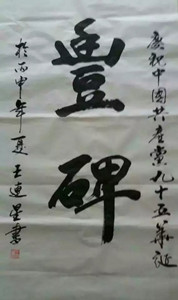 慶祝中國共產黨九十五華誕
豐碑
於丙申年夏王連星書